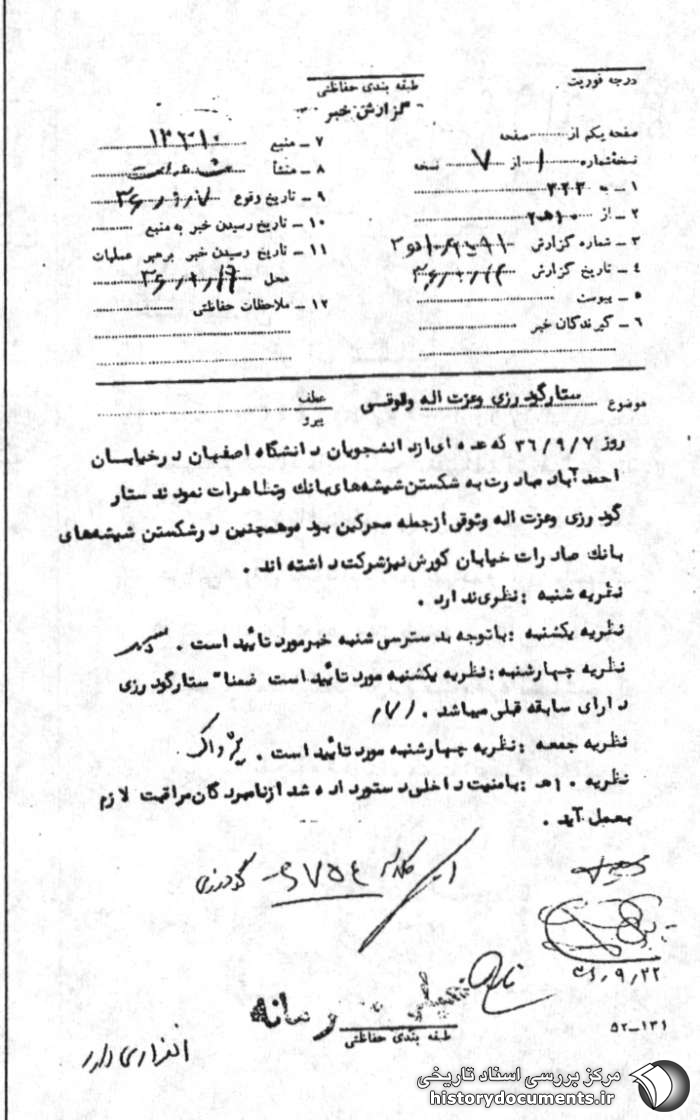 درجه فوریت
طبقه بندی حفاظتی
گزارش خبر
صفحه یکم از صفحه
نسخه شماره ۱ از ۷ نسخه
۱ ـ به ۳۲۳
۲ ـ از ۱۰ هـ ۲
۳ ـ شماره گزارش
۴ ـ تاریخ گزارش
۵ ـ پیوست
۶ ـ گیرندگان خبر
۷ ـ منبع
۸ ـ منشأ
۹ ـ تاریخ وقوع ۳۶/۹/۷
۱۰ ـ تاریخ رسیدن خبر به منبع
۱۱ ـ تاریخ رسیدن خبر برهبر عملیات
محل
۱۲ ـ ملاحظات حفاظتی
موضوع ستارگود رزی وعزت اله وثوقی
عطف
پیرو
روز ۳۶/۹/۷ که عده ای از دانشجویان دانشگاه اصفهان در خیابان
احمد آباد مبادرت به شکستن شیشه های بانک وتظاهرات نمودند ستار
گودرزی وعزت اله وثوقی از جمله محرکین بوده و همچنین در شکستن شیشه های
بانک صادرات خیابان کورش نیز شرکت داشته اند .
نظریه شنبه : نظری ندارد .
نظریه یکشنبه : با توجه بدسترسی شنبه خبر مورد تائید است .
نظریه چهارشنبه : نظریه یکشنبه مورد تائید است ضمنا" ستارگودرزی
دارای سابقه قبلی میباشد .
نظریه جمعه : نظریه چهارشنبه مورد تائید است . پژواک
نظریه ۱۰ هـ : بامنیت داخلی دستور داده شد از نامبردگان مراقبت لازم
بعمل آید .
گودرزی
۳۶/۹/۲۲
طبقه بندی حفاظتی
۵۲-۱۳۱
مرکز بررسی اسناد تاریخی
historydocuments.ir